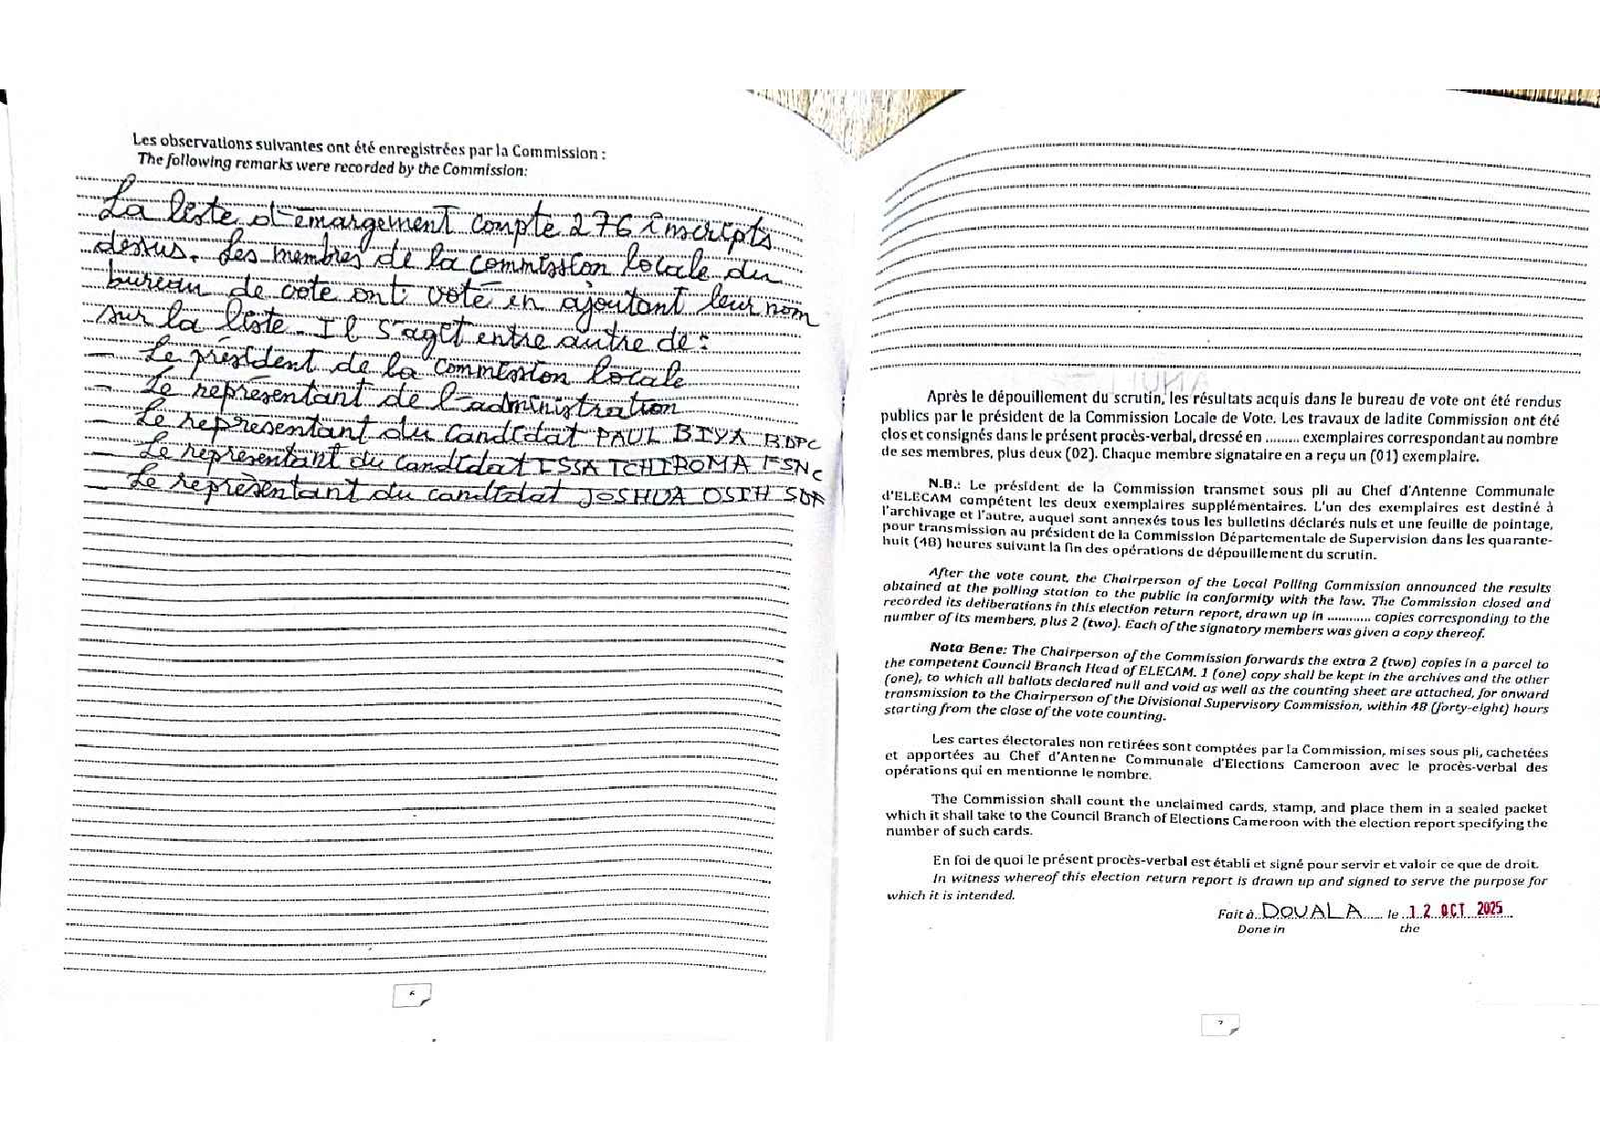 Les observations suivantes ont été enregistrées par la Commission :
The following remarks were recorded by the Commission:
La liste d'émargement compte 276 inscripts
dessus. Les membres de la commission locale du
bureau de vote ont voté en ajoutant leur nom
sur la liste. Il s'aget entre autre de :
– Le président de la commission locale
– Le représentant de l'administration
– Le représentant du candidat PAUL BIYA RDPC
– Le représentant du candidat ISSA TCHIROMA FSNC
– Le représentant du candidat JOSHUA OSIH SDF
6
Après le dépouillement du scrutin, les résultats acquis dans le bureau de vote ont été rendus
publics par le président de la Commission Locale de Vote. Les travaux de ladite Commission ont été
clos et consignés dans le présent procès-verbal, dressé en ......... exemplaires correspondant au nombre
de ses membres, plus deux (02). Chaque membre signataire en a reçu un (01) exemplaire.
N.B.: Le président de la Commission transmet sous pli au Chef d'Antenne Communale
d'ELECAM compétent les deux exemplaires supplémentaires. L'un des exemplaires est destiné à
l'archivage et l'autre, auquel sont annexés tous les bulletins déclarés nuls et une feuille de pointage,
pour transmission au président de la Commission Départementale de Supervision dans les quarante-
huit (48) heures suivant la fin des opérations de dépouillement du scrutin.
After the vote count, the Chairperson of the Local Polling Commission announced the results
obtained at the polling station to the public in conformity with the law. The Commission closed and
recorded its deliberations in this election return report, drawn up in ............ copies corresponding to the
number of its members, plus 2 (two). Each of the signatory members was given a copy thereof.
Nota Bene: The Chairperson of the Commission forwards the extra 2 (two) copies in a parcel to
the competent Council Branch Head of ELECAM. 1 (one) copy shall be kept in the archives and the other
(one), to which all ballots declared null and void as well as the counting sheet are attached, for onward
transmission to the Chairperson of the Divisional Supervisory Commission, within 48 (forty-eight) hours
starting from the close of the vote counting.
Les cartes électorales non retirées sont comptées par la Commission, mises sous pli, cachetées
et apportées au Chef d'Antenne Communale d'Elections Cameroon avec le procès-verbal des
opérations qui en mentionne le nombre.
The Commission shall count the unclaimed cards, stamp, and place them in a sealed packet
which it shall take to the Council Branch of Elections Cameroon with the election report specifying the
number of such cards.
En foi de quoi le présent procès-verbal est établi et signé pour servir et valoir ce que de droit.
In witness whereof this election return report is drawn up and signed to serve the purpose for
which it is intended.
Fait à DOUALA le 12 OCT 2025
Done in the
7